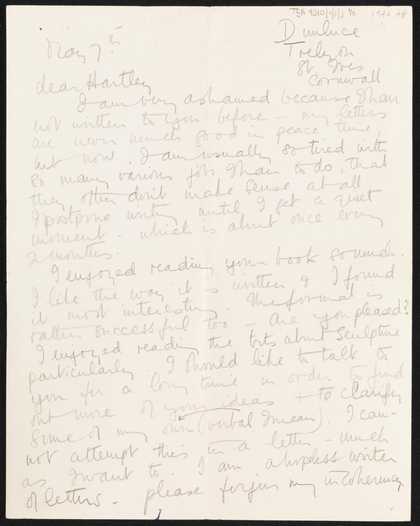 Nov 7th
Dunluce
Trelyon
St Ives
Cornwall
dear Hartley
I am very ashamed because I have
not written to you before – my letters
are never much good in peace time,
but now I am usually so tired with
so many various jobs I have to do, that
they often don't make sense at all
I postpone writing until I get a quiet
moment – which is about once every
2 months.
I enjoyed reading your book so much.
I like the way it is written & I found
it most interesting. The format is
rather successful too – are you pleased?
I enjoyed reading the bits about sculpture
particularly I should like to talk to
you for a long time in order to find
out more of your ideas & to clarify
some of my own (verbal I mean). I can-
not attempt this in a letter – much
as I want to. I am a hopeless writer
of letters – please forgive my incoherency